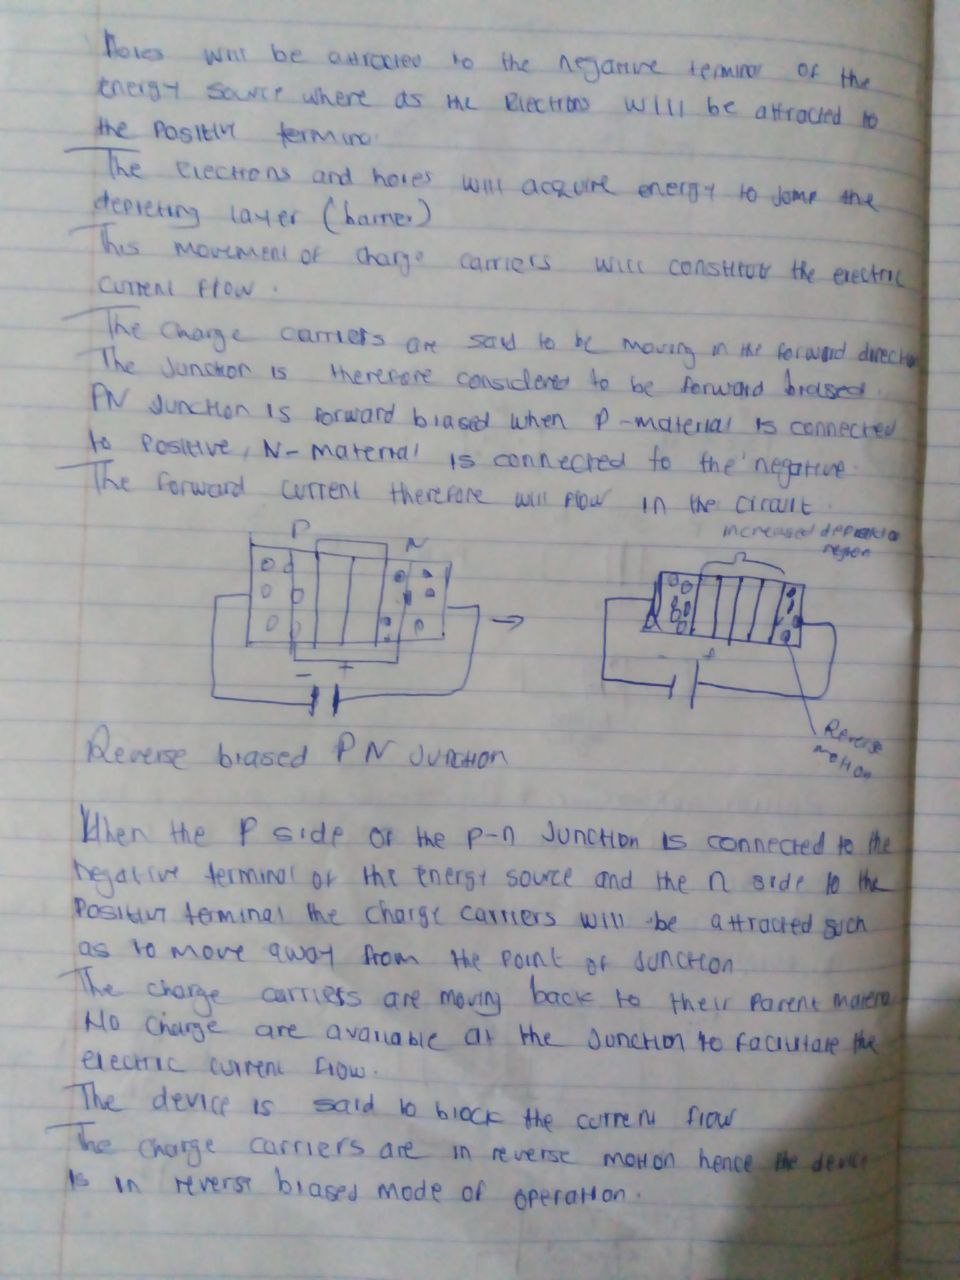 Holes will be attracted to the negative terminal of the
energy source where as the Electrons will be attracted to
the positive terminal.
The Electrons and holes will acquire energy to Jomp the
depleting layer (barrier)
This movement of charge carriers will constitute the electric
current flow.
The charge carriers are said to be moving in the forward direction
The Junction is therefore considered to be forward biased.
PN Junction is forward biased when P-material is connected
to Positive, N-material is connected to the negative.
The forward current therefore will flow in the circuit.
increased depletion
region
P N
- +
- +
Reverse
motion
Reverse biased PN Junction
When the P side of the p-n Junction is connected to the
negative terminal of the energy source and the n side to the
Positive terminal the charge carriers will be attracted such
as to move away from the point of Junction
The charge carriers are moving back to their parent material
No charge are available at the Junction to facilitate the
electric current flow.
The device is said to block the current flow
The charge carriers are in reverse motion hence the device
is in reverse biased mode of operation.